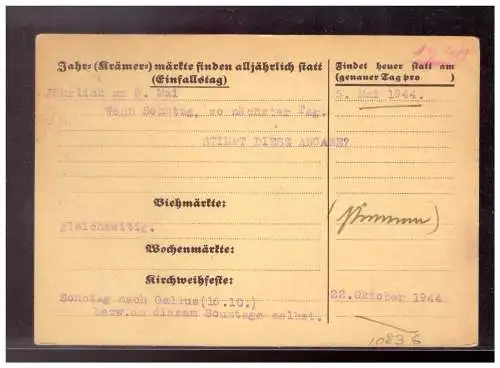 Jahr- (Krämer-) märkte finden alljährlich statt
(Einfallstag)
Findet heuer statt am
(genauer Tag pro )
Jährlich am 5. Mai
5. Mai 1944.
Wenn Sonntag, so nächster Tag.
STIMMT DIESE ANGABE?
Viehmärkte:
gleichzeitig.
Wochenmärkte:
Kirchweihfeste:
Sonntag nach Gallus(16.10.)
22.Oktober 1944
bezw.an diesem Sonntage selbst.
10836